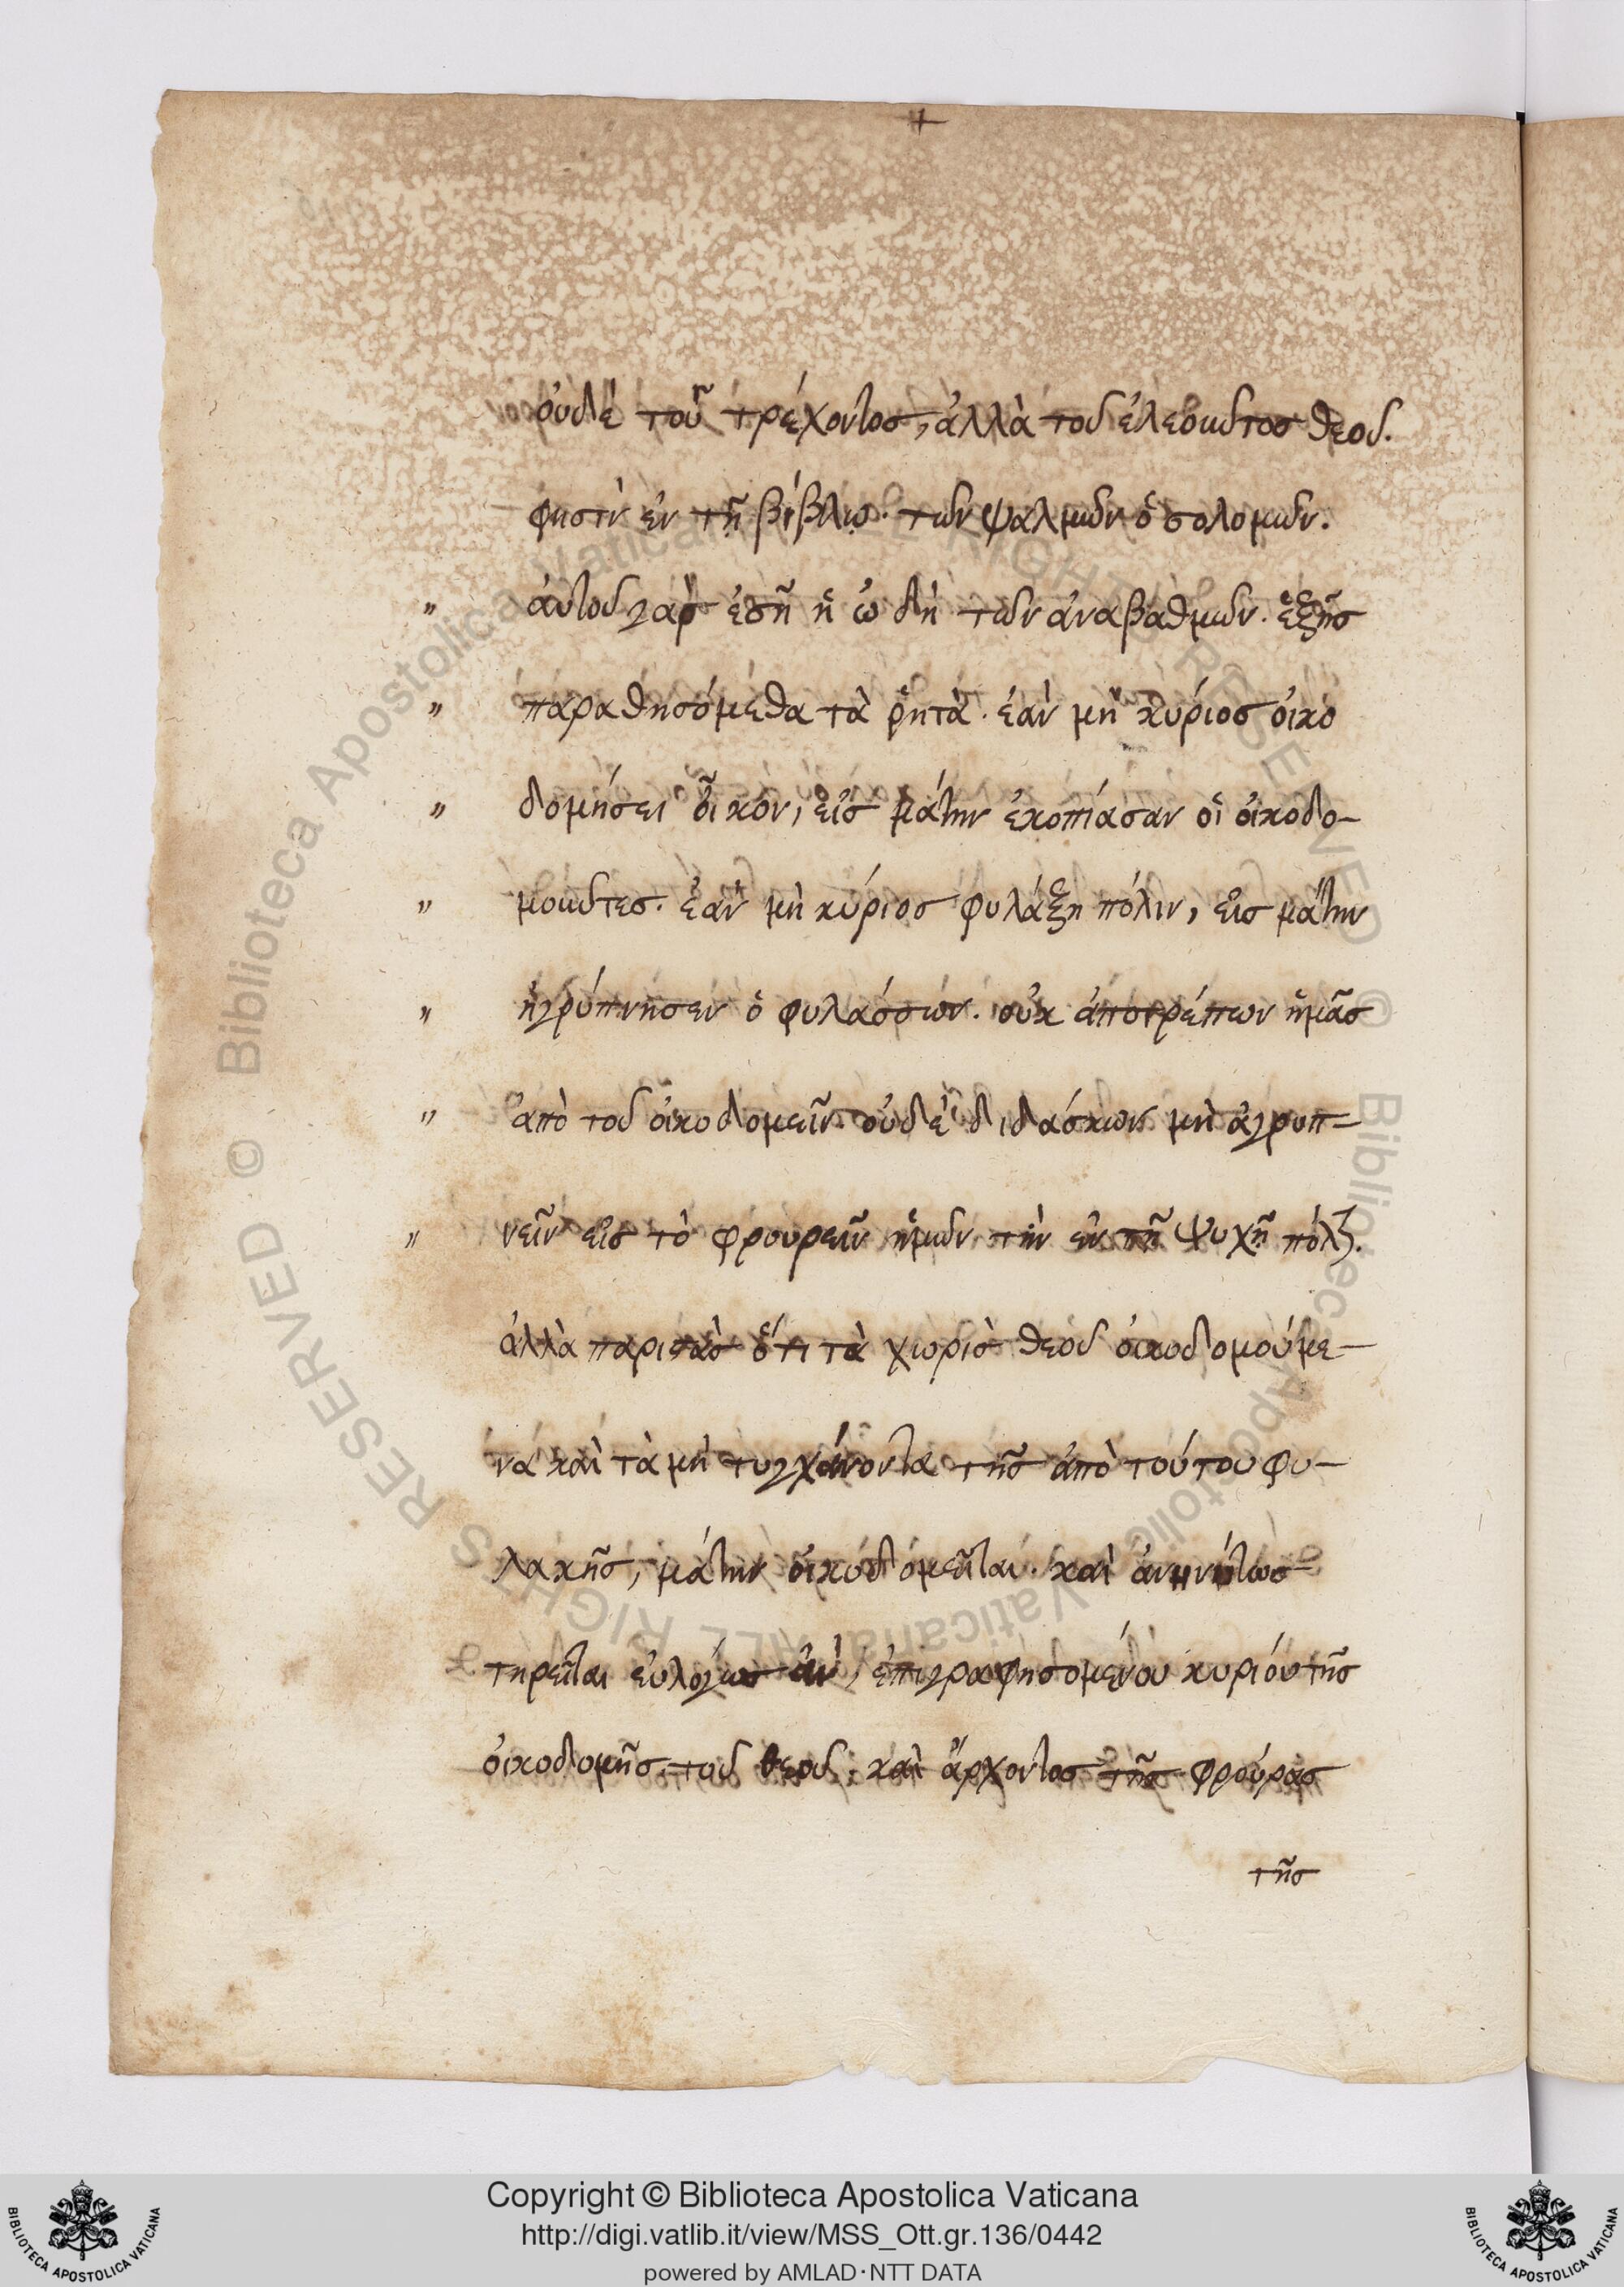 οὐδὲ τοῦ τρέχοντος, ἀλλὰ τοῦ ἐλεοῦντος θεοῦ.
φησὶν ἐν τῇ βίβλῳ. τῶν ψαλμῶν ὁ σολομῶν.
" αὐτοῦ γὰρ ἐστὶ ἡ ὠδὴ τῶν ἀναβαθμῶν. ἐξῆς
" παραθησόμεθα τὰ ῥητὰ. ἐὰν μὴ κύριος οἰκο
" δομήσει οἶκον, εἰς μάτην ἐκοπίασαν οἱ οἰκοδο-
" μοῦντες. ἐὰν μὴ κύριος φυλάξῃ πόλιν, εἰς μάτην
" ἠγρύπνησεν ὁ φυλάσσων. οὐκ ἀποτρέπων ἡμᾶς
" ἀπὸ τοῦ οἰκοδομεῖν. οὐδὲ διδάσκων μὴ ἀγρυπ-
" νεῖν εἰς τὸ φρουρεῖν ἡμῶν τὴν ἐν τῇ ψυχῇ πόλιν.
ἀλλὰ παριστὰς ὅτι τὰ χωρὶς θεοῦ οἰκοδομούμε-
να καὶ τὰ μὴ τυγχάνοντα τῆς ἀπὸ τούτου φυ-
λακῆς, μάτην οἰκοδομεῖται. καὶ ἀνηνύτως
τηρεῖται εὐλόγως ἂν, ἐπιγραφησομένου κυρίου τῆς
οἰκοδομῆς τοῦ θεοῦ. καὶ ἄρχοντος τῆς φρούρας
τῆς
Copyright © Biblioteca Apostolica Vaticana
http://digi.vatlib.it/view/MSS_Ott.gr.136/0442
powered by AMLAD·NTT DATA
BIBLIOTECA APOSTOLICA VATICANA
BIBLIOTECA APOSTOLICA VATICANA
Biblioteca Apostolica Vaticana ALL RIGHTS RESERVED © Biblioteca Apostolica Vaticana ALL RIGHTS RESERVED ©